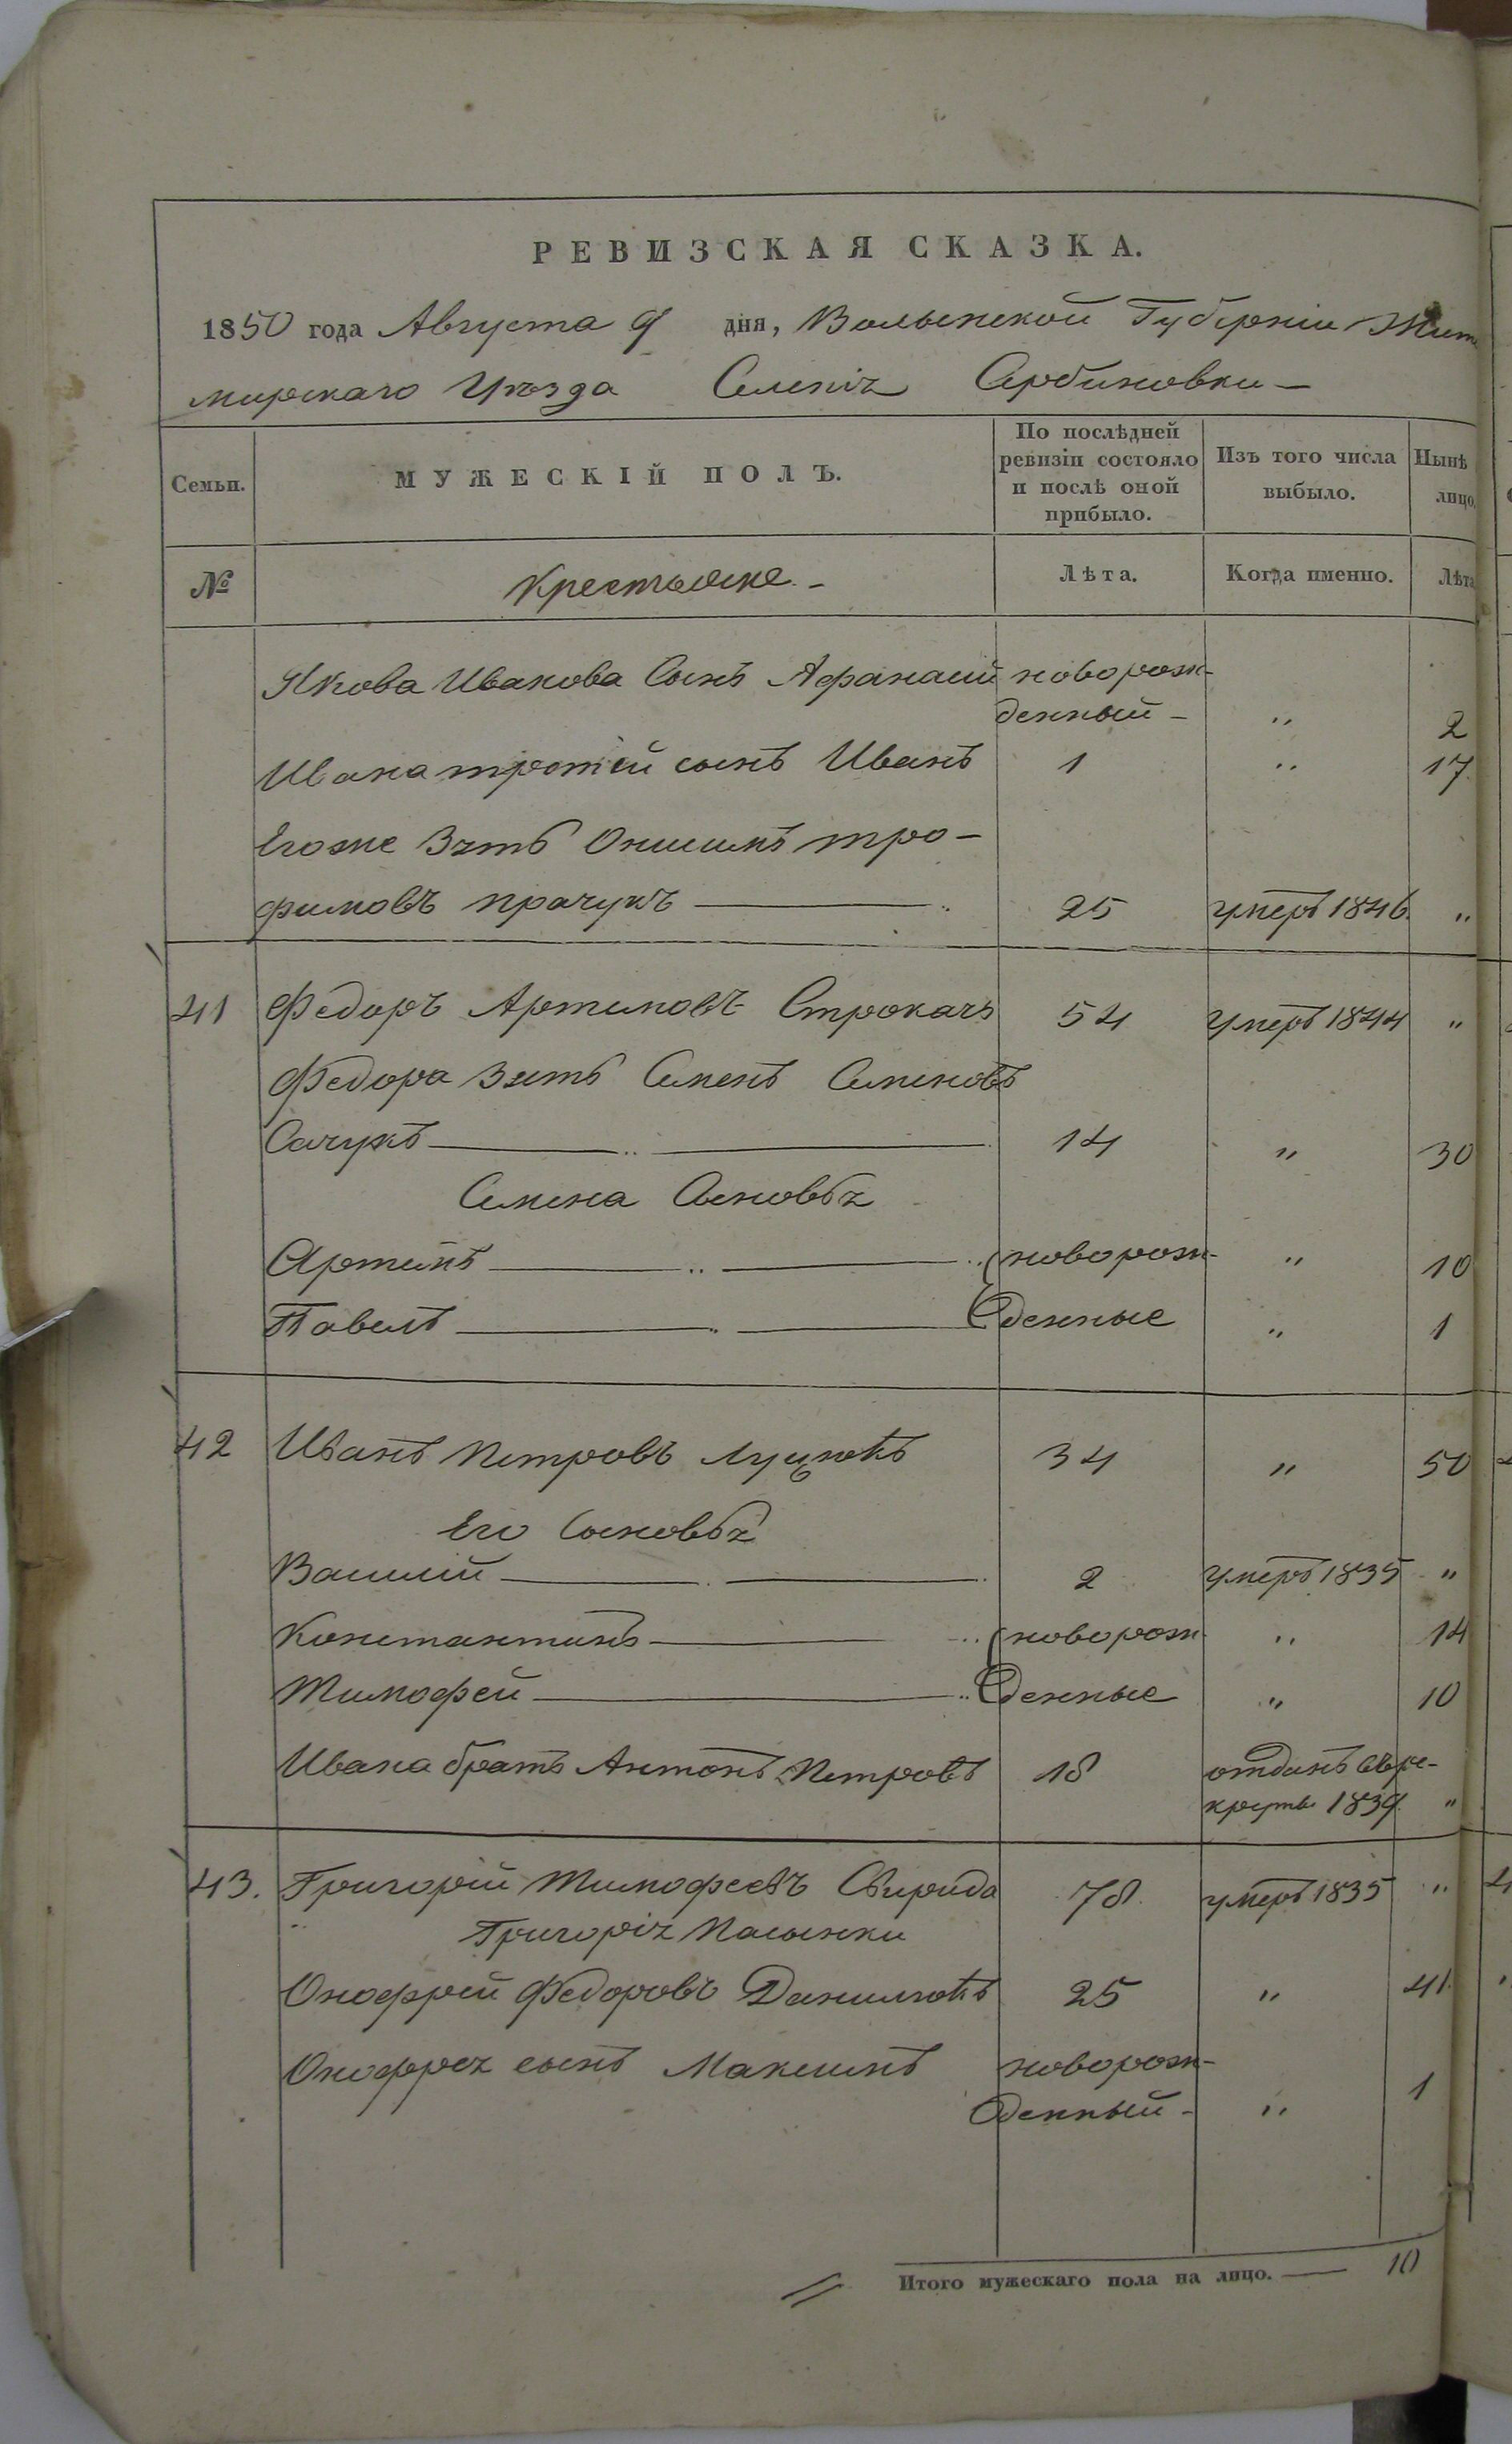 РЕВИЗСКАЯ СКАЗКА.
1850 года Августа 9 дня, Волынской Губерніи Жит
мирскаго Уѣзда Селенія Сербиновки —
Семьи. МУЖЕСКІЙ ПОЛЪ. По послѣдней ревизіи состояло и послѣ оной прибыло. Изъ того числа выбыло. Нынѣ лицо.
№ Крестьяне. — Лѣта. Когда именно. Лѣта
Якова Иванова Сынъ Афанасій новорож-
денный — „ 2
Ивана третій сынъ Иванъ 1 „ 17
Егоже Зять Онисимъ тро-
фимовъ прачукъ 25 умеръ 1846. „
41 Федоръ Артимовъ Строкачъ 54 умеръ 1844 „
Федора Зять Семенъ Семеновъ
Сачукъ 14 „ 30
Семена Сыновья
Артимъ новорож- „ 10
Павелъ денные „ 1
42 Иванъ Петровъ Луцюкъ 34 „ 50
Его Сыновья
Василій 2 умеръ 1835 „
Константинъ новорож- „ 14
Тимофей денные „ 10
Ивана братъ Антонъ Петровъ 18 отданъ въ ре-
круты 1839. „
43. Григорій Тимофеевъ Свирида 78 умеръ 1835 „
Григорія Пасынки
Онофрей Федоровъ Данилюкъ 25 „ 41
Онофрея сынъ Максимъ новорож-
денный — „ 1
Итого мужескаго пола на лицо. — 10